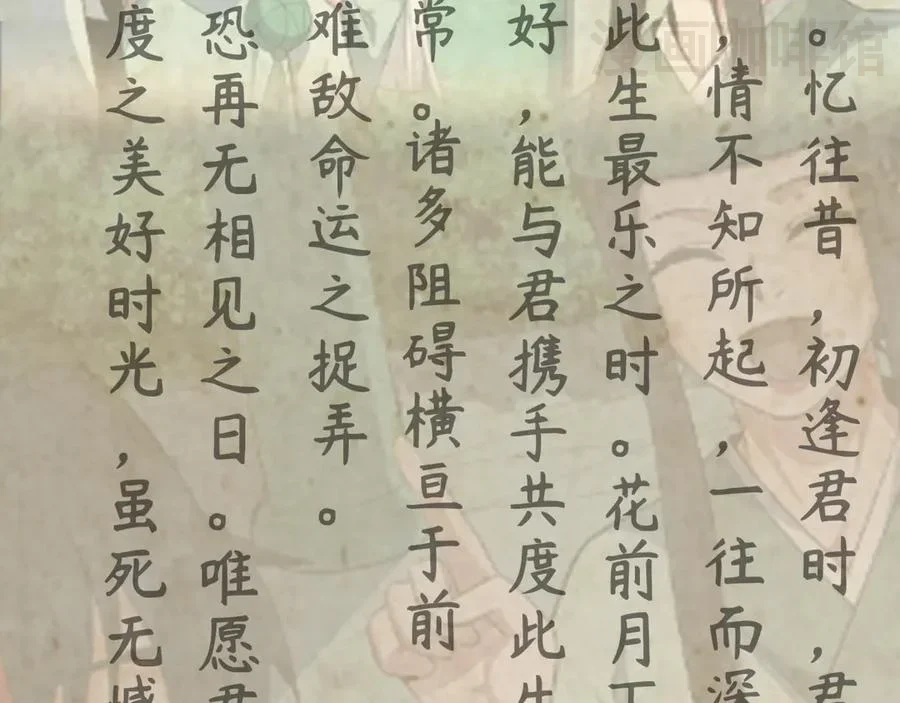 。忆往昔，初逢君时，君
，情不知所起，一往而深
此生最乐之时。花前月下
好，能与君携手共度此生
常。诸多阻碍横亘于前
难敌命运之捉弄。
恐再无相见之日。唯愿君
度之美好时光，虽死无憾
漫画咖啡馆